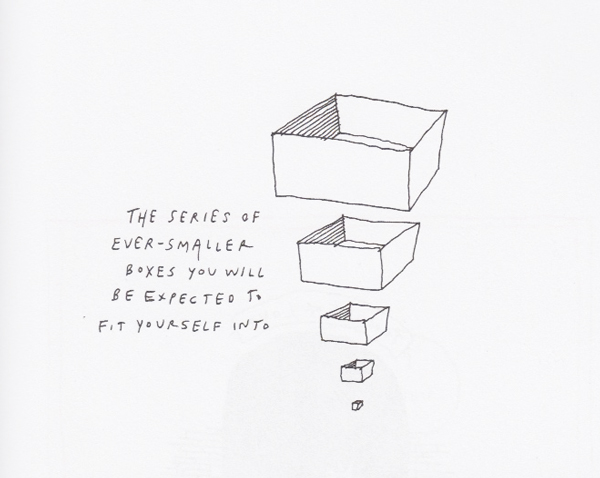 THE SERIES OF
EVER-SMALLER
BOXES YOU WILL
BE EXPECTED TO
FIT YOURSELF INTO